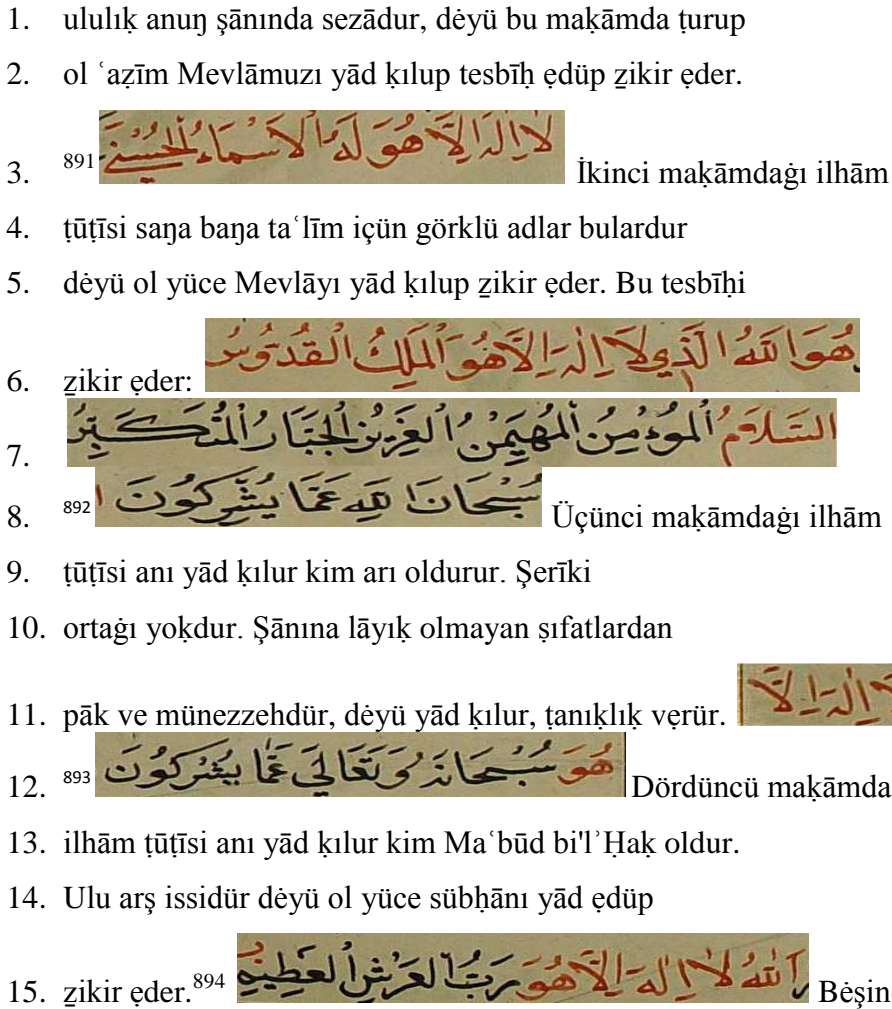 1. ululıḳ anuŋ şānında sezādur, dėyü bu maḳāmda ṭurup
2. ol ʿaẓīm Mevlāmuzı yād ḳılup tesbīḥ ẹdüp ẕikir ẹder.
3. 891 لَا اِلٰهَ اِلَّا هُوَ لَهُ الْاَسْمَاءُ الْحُسْنٰي İkinci maḳāmdaġı ilhām
4. ṭūṭīsi saŋa baŋa taʿlīm içün görklü adlar bulardur
5. dėyü ol yüce Mevlāyı yād ḳılup ẕikir ẹder. Bu tesbīḥi
6. ẕikir ẹder: هُوَ اللّٰهُ الَّذِي لَا اِلٰهَ اِلَّا هُوَ اَلْمَلِكُ الْقُدُّوسُ
7. السَّلَامُ اَلْمُؤْمِنُ اَلْمُهَيْمِنُ اَلْعَزِيزُ الْجَبَّارُ الْمُتَكَبِّرُ
8. 892 سُبْحَانَ اللّٰهِ عَمَّا يُشْرِكُونَ Üçünci maḳāmdaġı ilhām
9. ṭūṭīsi anı yād ḳılur kim arı oldurur. Şerīki
10. ortaġı yoḳdur. Şānına lāyıḳ olmayan ṣıfatlardan
11. pāk ve münezzehdür, dėyü yād ḳılur, ṭanıḳlıḳ vẹrür. لَا اِلٰهَ اِلَّا
12. 893 هُوَ سُبْحَانَهُ وَتَعَالٰي عَمَّا يُشْرِكُونَ Dördüncü maḳāmda
13. ilhām ṭūṭīsi anı yād ḳılur kim Maʿbūd bi'lʾḤaḳ oldur.
14. Ulu arş issidür dėyü ol yüce sübḥānı yād ẹdüp
15. ẕikir ẹder.894 اَللّٰهُ لَا اِلٰهَ اِلَّا هُوَ رَبُّ الْعَرْشِ الْعَظِيمِ Bėşin